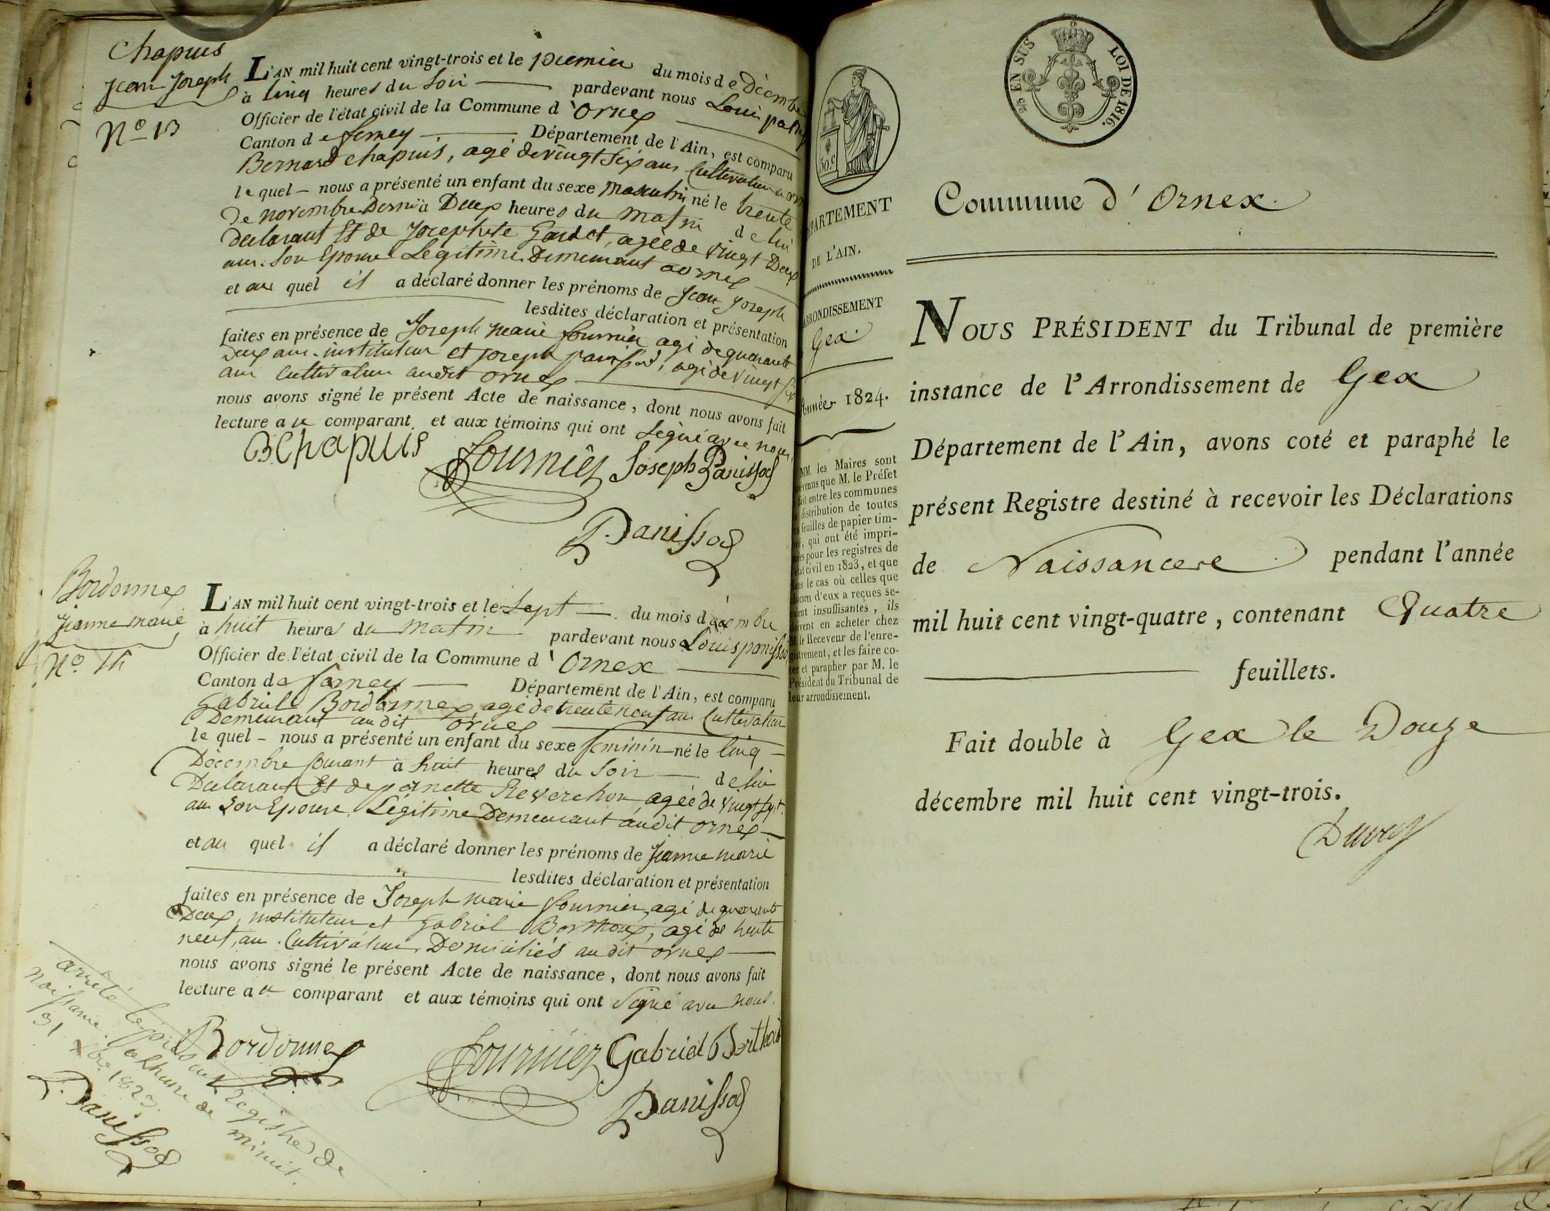 Chapuis
Jean Joseph
N° 13
L'AN mil huit cent vingt-trois et le premier du mois de Décembre
à Cinq heures du Soir pardevant nous Louis
Officier de l'état civil de la Commune d'Ornex
Canton de ferney Département de l'Ain, est comparu
Bernard Chapuis, agé de vingt Six ans Cultivateur a
lequel nous a présenté un enfant du sexe masculin né le trente
de novembre Dernier à Deux heures du matin de lui
Declarant Et de Josephete Gardet, agée de Vingt Deux
ans Son Epouse Légitime Demeurant a ornex
et au quel il a déclaré donner les prénoms de Jean Joseph
lesdites déclaration et présentation
faites en présence de Joseph marie fournier agé de quarante
Deux ans instituteur et joseph panissod, agé de Vingt
ans Cultivateur audit ornex
nous avons signé le présent Acte de naissance, dont nous avons fait
lecture au comparant et aux témoins qui ont Signé avec nous
BChapuis Fournier Joseph Panissod
Panissod
Bordonnex
Jeanne marie
N° 14
L'AN mil huit cent vingt-trois et le Sept du mois décembre
à huit heures du matin pardevant nous Louis panissod
Officier de l'état civil de la Commune d'Ornex
Canton de farney Département de l'Ain, est comparu
Gabriel Bordonnex agé de trente neuf ans Cultivateur
Demeurant audit Ornex
lequel nous a présenté un enfant du sexe feminin né le Cinq
Décembre Courant à huit heures du Soir de lui
Declarant Et de janette Reverchon agée de vingt sept
ans Son Epouse Légitime Demeurant audit ornex
et au quel il a déclaré donner les prénoms de Jeanne marie
lesdites déclaration et présentation
faites en présence de Joseph marie fournier, agé de quarante
Deux, instituteur et Gabriel Berthoud, agé de trente
neuf, ans Cultivateur Domiciliés audit ornex
nous avons signé le présent Acte de naissance, dont nous avons fait
lecture au comparant et aux témoins qui ont Signé avec nous.
Bordonnex Fournier Gabriel Berthoud
Panissod
arrêté le présent Registre de
naissance à l'heure de minuit.
31 Xbre 1823.
Panissod
25 EN SUS LOI DE 1816.
DÉPARTEMENT
DE L'AIN.
ARRONDISSEMENT
Gex.
Année 1824.
MM les Maires sont
que M. le Préfet
entre les communes
distribution de toutes
feuilles de papier tim-
, qui ont été impri-
pour les registres de
civil en 1823, et que
le cas où celles que
d'eux a reçues se-
insuffisantes, ils
en acheter chez
le Receveur de l'enre-
gistrement, et les faire co-
ter et parapher par M. le
Président du Tribunal de
leur arrondissement.
Commune d'Ornex
NOUS PRÉSIDENT du Tribunal de première
instance de l'Arrondissement de Gex
Département de l'Ain, avons coté et paraphé le
présent Registre destiné à recevoir les Déclarations
de Naissance pendant l'année
mil huit cent vingt-quatre, contenant Quatre
feuillets.
Fait double à Gex le Douze
décembre mil huit cent vingt-trois.